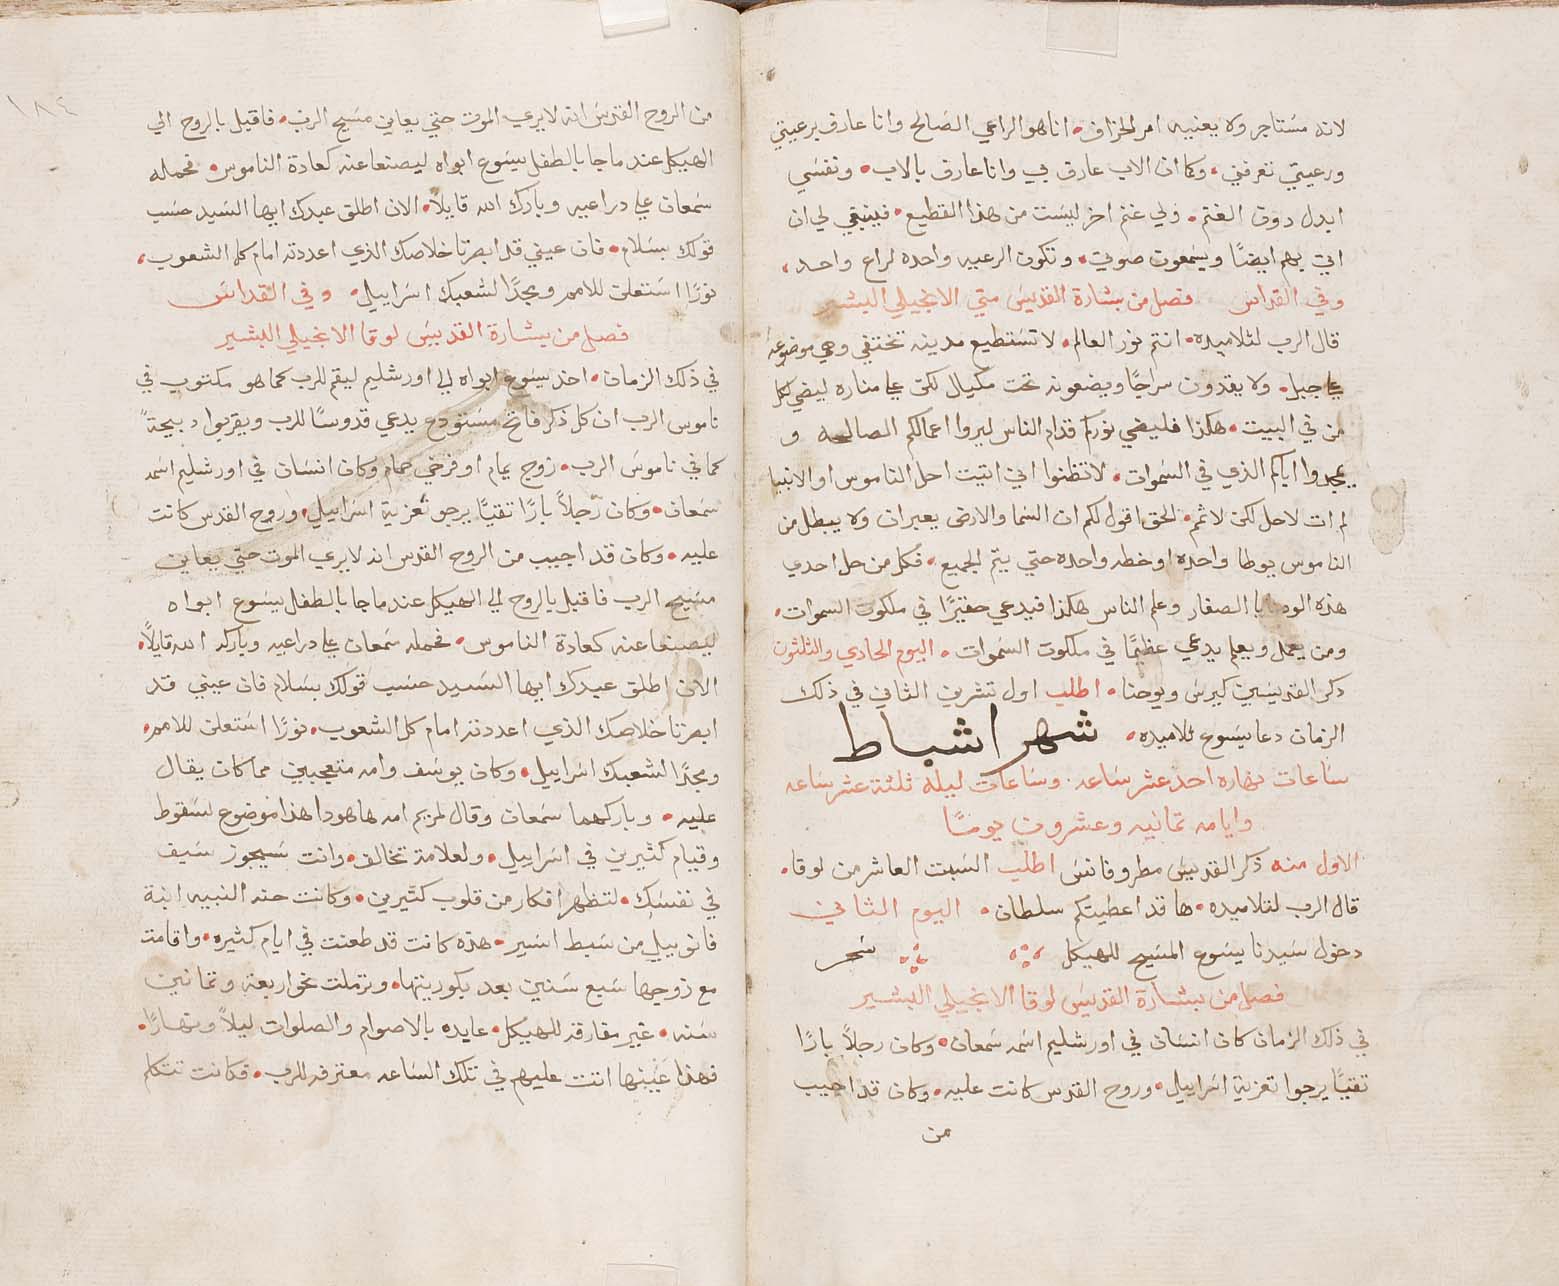 لانه مستاجر ولا يعنيه امر الخراف • انا هو الراعي الصالح وانا عارف برعيتي
ورعيتي تعرفني • وكما ان الاب عارف بي وانا عارف بالاب • ونفسي
ابدل دون الغنم • ولي غنم اخر ليست من هذا القطيع • فينبغي لي ان
اتي بهم ايضًا ويسمعون صوتي • وتكون الرعيه واحده لراع واحد •
وفي القداس فصل من بشارة القديس متي الانجيلي البشير
قال الرب لتلاميده • انتم نور العالم • لا تستطيع مدينه تختفي وهي موضوعه
علي جبل • ولا يقدون سراجًا ويضعونه تحت مكيال لكن علي مناره ليضي لكل
من في البيت • هكذا فليضي نوركم قدام الناس ليروا اعمالكم الصالحه و
يمجدوا اباكم الذي في السموات • لا تظنوا اني اتيت احل الناموس او الانبيا
لم ات لاحل لكن لاتمم • الحق اقول لكم ان السما والارض يعبران ولا يبطل من
الناموس يوطا واحده او خطه واحده حتي يتم الجميع • فكل من حل احدي
هذه الوصايا الصغار وعلم الناس هكذا فيدعي حقيرًا في ملكوت السموات •
ومن يعمل ويعلم يدعي عظيمًا في ملكوت السموات • اليوم الحادي والثلثون
دكر القديسين كيرس ويوحنا • اطلب اول تشرين الثاني في ذلك
الزمان دعا يسوع تلاميده • شهر اشباط
ساعات نهاره احد عشر ساعه • وساعات ليله ثلثة عشر ساعه
وايامه تمانيه وعشرون يومًا
الاول منه ذكر القديس مطروفانس اطلب السبت العاشر من لوقا •
قال الرب لتلاميده • ها قد اعطيتكم سلطان • اليوم الثاني
دخول سيدنا يسوع المسيح للهيكل سحر
فصل من بشارة القديس لوقا الانجيلي البشير
في ذلك الزمان كان انسان في اورشليم اسمه سمعان • وكان رجلاً بارًا
تقيًا يرجوا تعزية اسراييل • وروح القدس كانت عليه • وكان قد اجيب
من
١٨٤
من الروح القدس انه لا يري الموت حتي يعاين مسيح الرب • فاقبل بالروح الي
الهيكل عند ما جا بالطفل يسوع ابواه ليصنعا عنه كعادة الناموس • فحمله
سمعان علي دراعيه وبارك الله قايلاً • الان اطلق عبدك ايها السيد حسب
قولك بسلام • فان عيني قد ابصرتا خلاصك الذي اعددته امام كل الشعوب •
نورًا استعلن للامم ومجدًا لشعبك اسراييل • وفي القداس
فصل من بشارة القديس لوقا الانجيلي البشير
في ذلك الزمان • اخذ يسوع ابواه الي اورشليم ليقم للرب كما هو مكتوب في
ناموس الرب ان كل ذكر فاتح مستودع يدعي قدوسًا للرب ويقربوا دبيحةً
كما في ناموس الرب • زوج يمام او فرخي حمام وكان انسان في اورشليم اسمه
سمعان • وكان رجلاً بارًا تقيًا يرجو تعزية اسراييل • وروح القدس كانت
عليه • وكان قد اجيب من الروح القدس انه لا يري الموت حتي يعاين
مسيح الرب فاقبل بالروح الي الهيكل عند ما جا بالطفل يسوع ابواه
ليصنعا عنه كعادة الناموس • فحمله سمعان علي دراعيه وبارك الله قايلاً •
الان اطلق عبدك ايها السيد حسب قولك بسلام فان عيني قد
ابصرتا خلاصك الذي اعددته امام كل الشعوب • نورًا استعلن للامم •
ومجدًا لشعبك اسراييل • وكان يوسف وامه متعجبين مما كان يقال
عليه • وباركهما سمعان وقال لمريم امه ها هودا هذا موضوع لسقوط
وقيام كثيرين في اسراييل • ولعلامة تخالف • وانت سيجوز سيف
في نفسك • لتظهر افكار من قلوب كثيرين • وكانت حنه النبيه ابنة
فانوييل من سبط اسير • هذه كانت قد طعنت في ايام كثيره • واقامت
مع زوجها سبع سنين بعد بكوريتها • وترملت نحو اربعة وتمانين
سنه • غير مفارقه للهيكل • عابده بالاصوام والصلوات ليلاً ونهارًا •
فهذا عينها اتت عليهم في تلك الساعه معترفه للرب • فكانت تتكلم